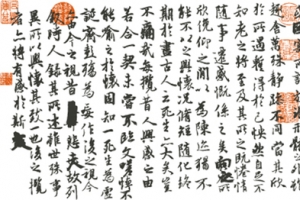 趣舍萬殊靜躁不同當其欣
於所遇蹔得於己怏然自足不
知老之將至及其所之既惓情
隨事遷感慨係之矣向之所
欣俛仰之閒以為陳迹猶不
能不以之興懷況脩短隨化終
期於盡古人云死生亦大矣豈
不痛哉每攬昔人興感之由
若合一契未嘗不臨文嗟悼不
能喻之於懷固知一死生為虛
誕齊彭殤為妄作後之視今
亦由今之視昔悲夫故列
敘時人錄其所述雖世殊事
異所以興懷其致一也後之攬
者亦將有感於斯